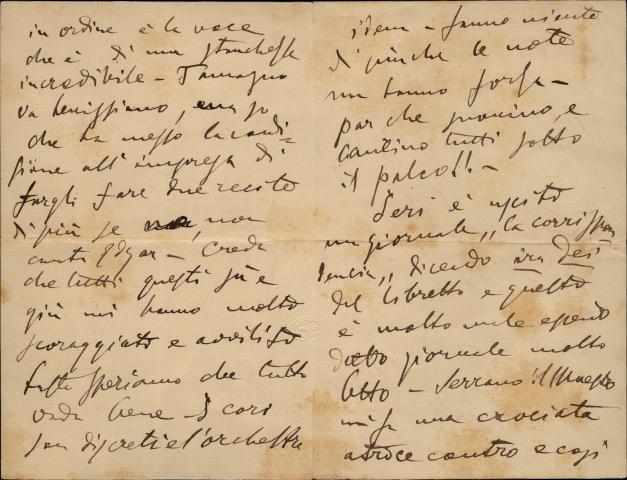 in ordine è la voce
che è di una stanchezza
incredibile - Tamagno
va benissimo, ma so
che ha messo la condi=
zione all'impresa di
fargli fare due recite
di più se non
canta Edgar - Creda
che tutti questi su e
giù mi hanno molto
scoraggiato e avvilito
speriamo che tutto
vada bene - I cori
son discreti e l'orchestra
idem - fanno niente
di più che le note
non hanno forza -
par che suonino, e
cantino tutti sotto
il palco!! -
Ieri è uscito
un giornale „la corrispon
denza„ dicendo ira dei
del libretto e questo
è molto male essendo
detto giornale molto
letto - Serrano il Maestro
mi fa una crociata
atroce contro e così